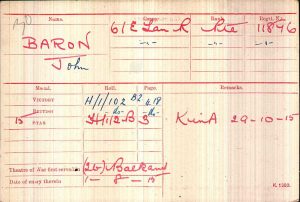 Name. Corps. Rank. Regtl. No.
BARON 6/E Lan R Pte 11876
John -"- -"-
Medal. Roll. Page. Remarks.
VICTORY H/1/102 B2 618
BRITISH -do- -do-
15 STAR H/1/2 B 3 K in A 29-10-15
Theatre of War first served in (2b) Balkans
Date of entry therein 1-8-15
K. 1380.